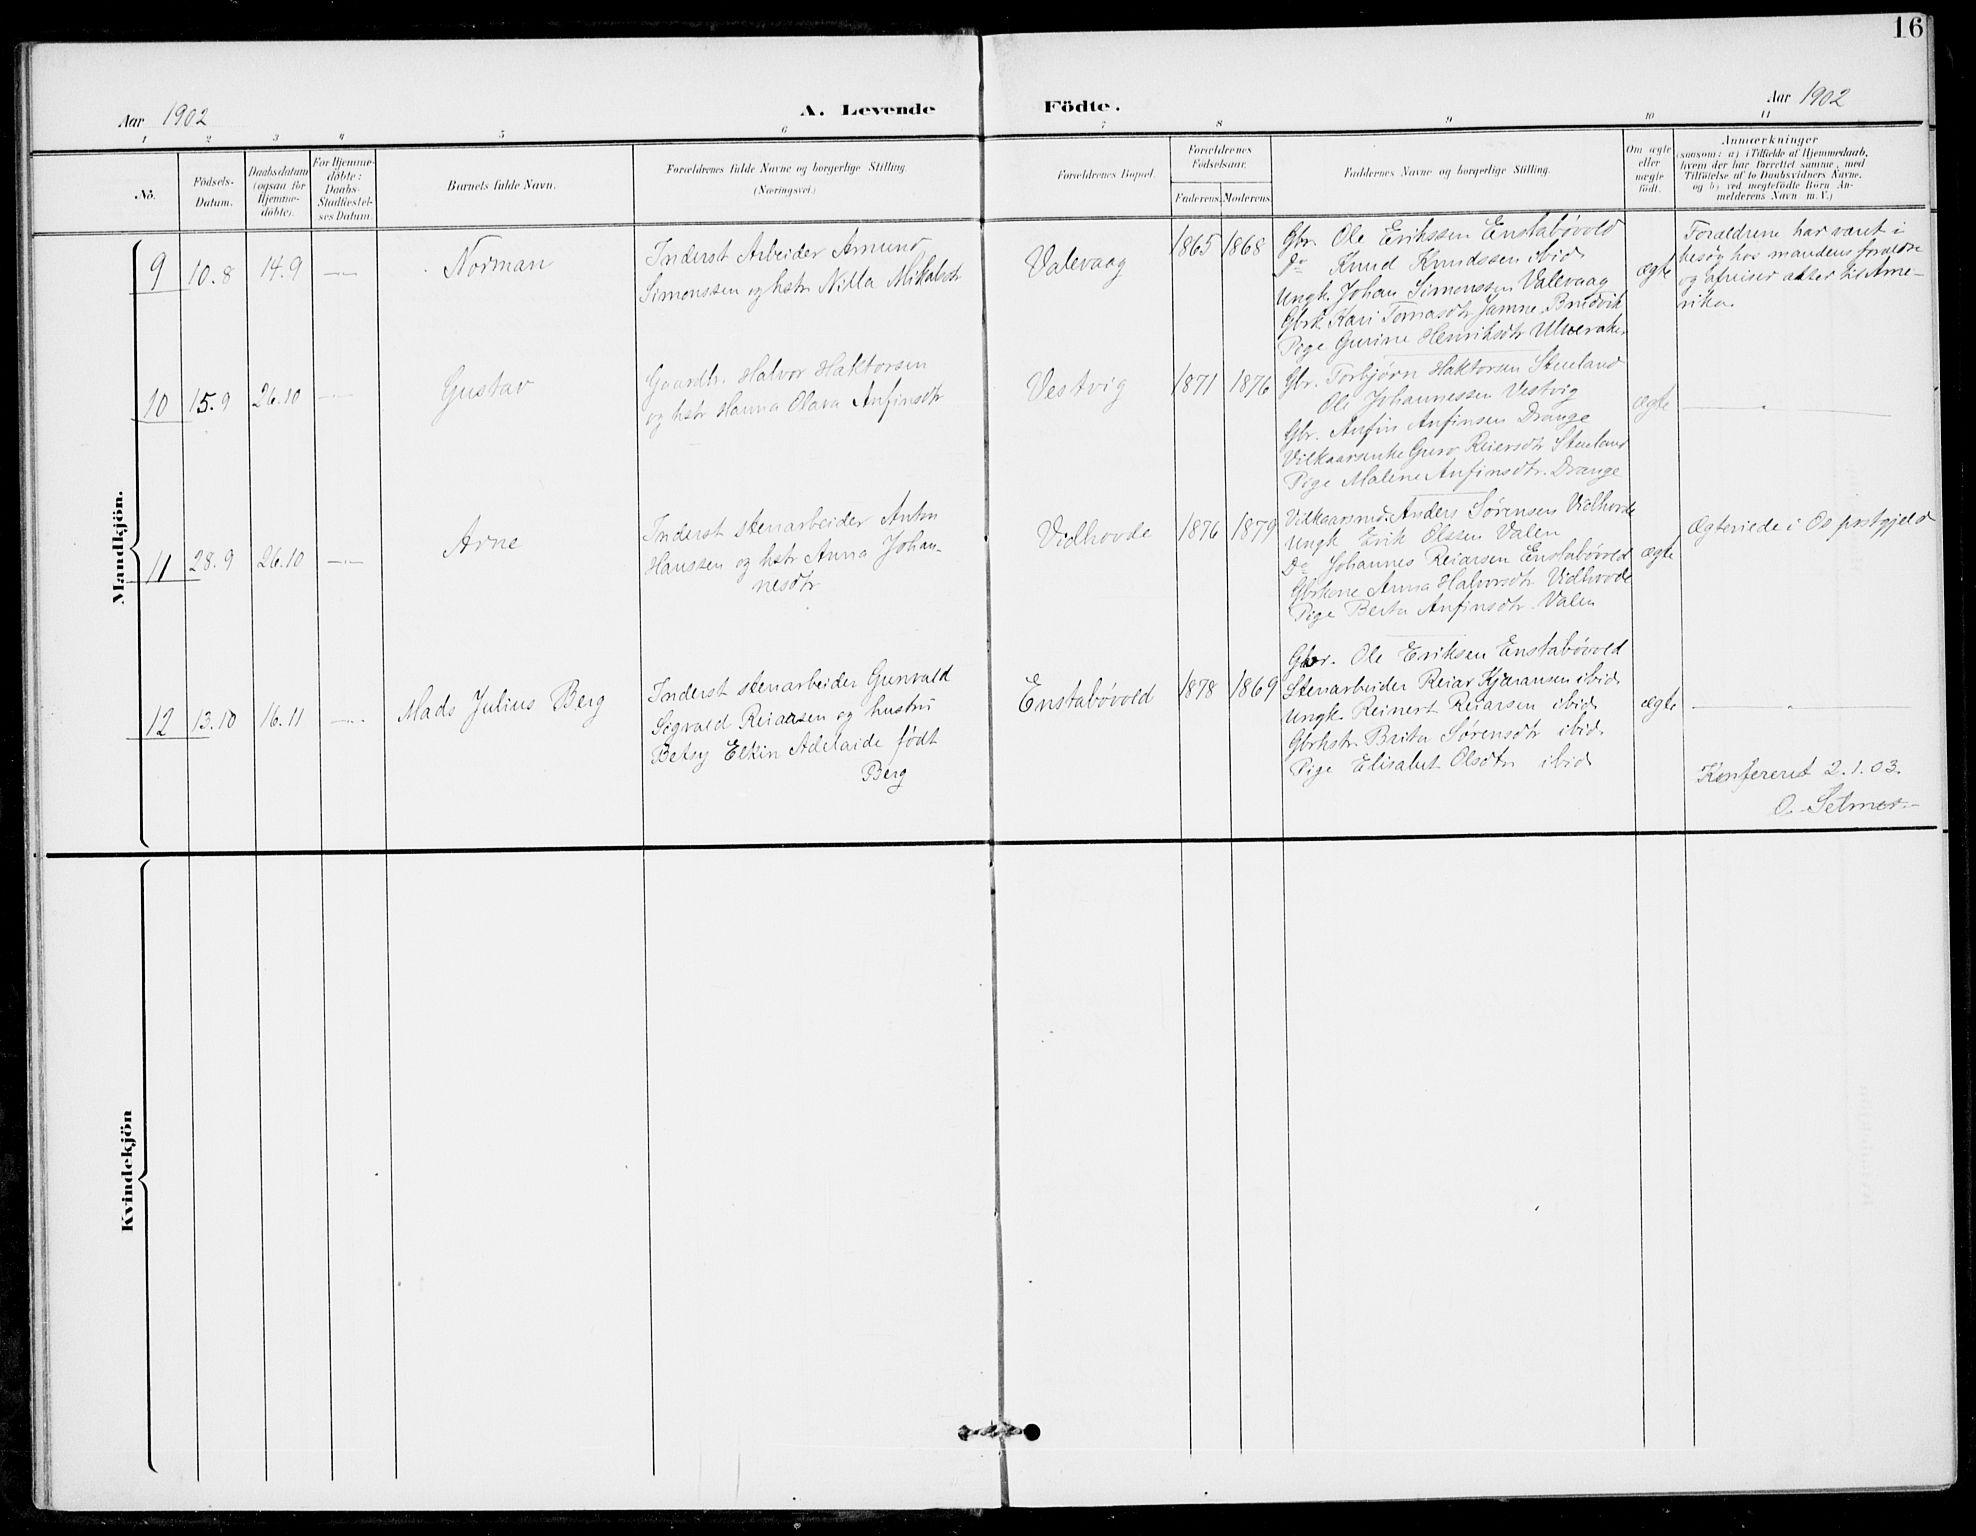 16
Aar 1902
A. Levende Födte.
Aar 1902
1 2 3 4 5 6 7 8 9 10 11
No.
Födsels-
Datum.
Daabsdatum
(ogsaa for
Hjemme-
döbte).
For Hjemme-
döbte:
Daabs-
Stadfæstel-
ses Datum.
Barnets fulde Navn.
Forældrenes fulde Navne og borgerlige Stilling
(Næringsvei.)
Forældrenes Bopæl.
Forældrenes
Födselsaar.
Faderens. Moderens.
Faddernes Navne og borgerlige Stilling.
Om ægte
eller
uægte
födt.
Anmærkninger
(saasom: a) i Tilfælde af Hjemmedaab,
hvem der har forrettet samme, med
Tilföielse af to Daabsvidners Navne,
og b) ved uægtefödte Börn An-
melderens Navn m. V.)
Mandkjön.
9 10.8 14.9 —„—
Norman
Inderst Arbeider Amund
Simonssen og hstr Nilla Mikalsdtr
Valevaag
1865 1868
Gbr. Ole Erikssen Enstabøvold
Do Knud Knudssen ibid
Ungk. Johan Simonssen Valevaag
Gbrk. Kari Tomasdtr Jamne, Brudvik
Pige Gurine Henriksdtr Ulveraker
ægte
Forældrene har været i
besøg hos mandens forældre
og afreiser atter til Ame-
rika.
10 15.9 26.10 —„—
Gustav
Gaardbr. Halvor Haktorsen
og hstr Hanna Olava Anfinsdtr
Vestvig
1871 1876
Gbr. Torbjørn Haktorsen Stueland
Ole Johannessen Vestvig
Gbr. Anfin Anfinsen Drange
Vilkaarsenke Guro Reiersdtr Stueland
Pige Malene Anfinsdtr. Drange
ægte
—„—
11 28.9 26.10 —„—
Arne
Inderst stenarbeider Anton
Hanssen og hstr Anna Johan-
nesdtr
Vidhovde
1876 1879
Vilkaarsmd. Anders Sørensen Vidhovde
Ungk Erik Olssen Valen
Do Johannes Reiarsen Enstabøvold
Gbrkone Anna Halvorsdtr Vidhovde
Pige Berta Anfinsdtr. Valen
ægte
Ægteviede i Os prstgjeld
12 13.10 16.11 —„—
Mads Julius Berg
Inderst stenarbeider Gunvald
Sigvald Reiarsen og hustru
Betsy Elkin Adelaide født
Berg
Enstabøvold
1878 1869
Gbr. Ole Eriksen Enstabøvold
Stenarbeider Reiar Kjaransen ibid
Ungk. Reinert Reiarsen ibid
Gbrhstr. Brita Sørensdtr ibid.
Pige Elisabet Olsdtr ibid
ægte
—„—
Konfereret 2.1.03.
O. Selmer
Kvindekjön